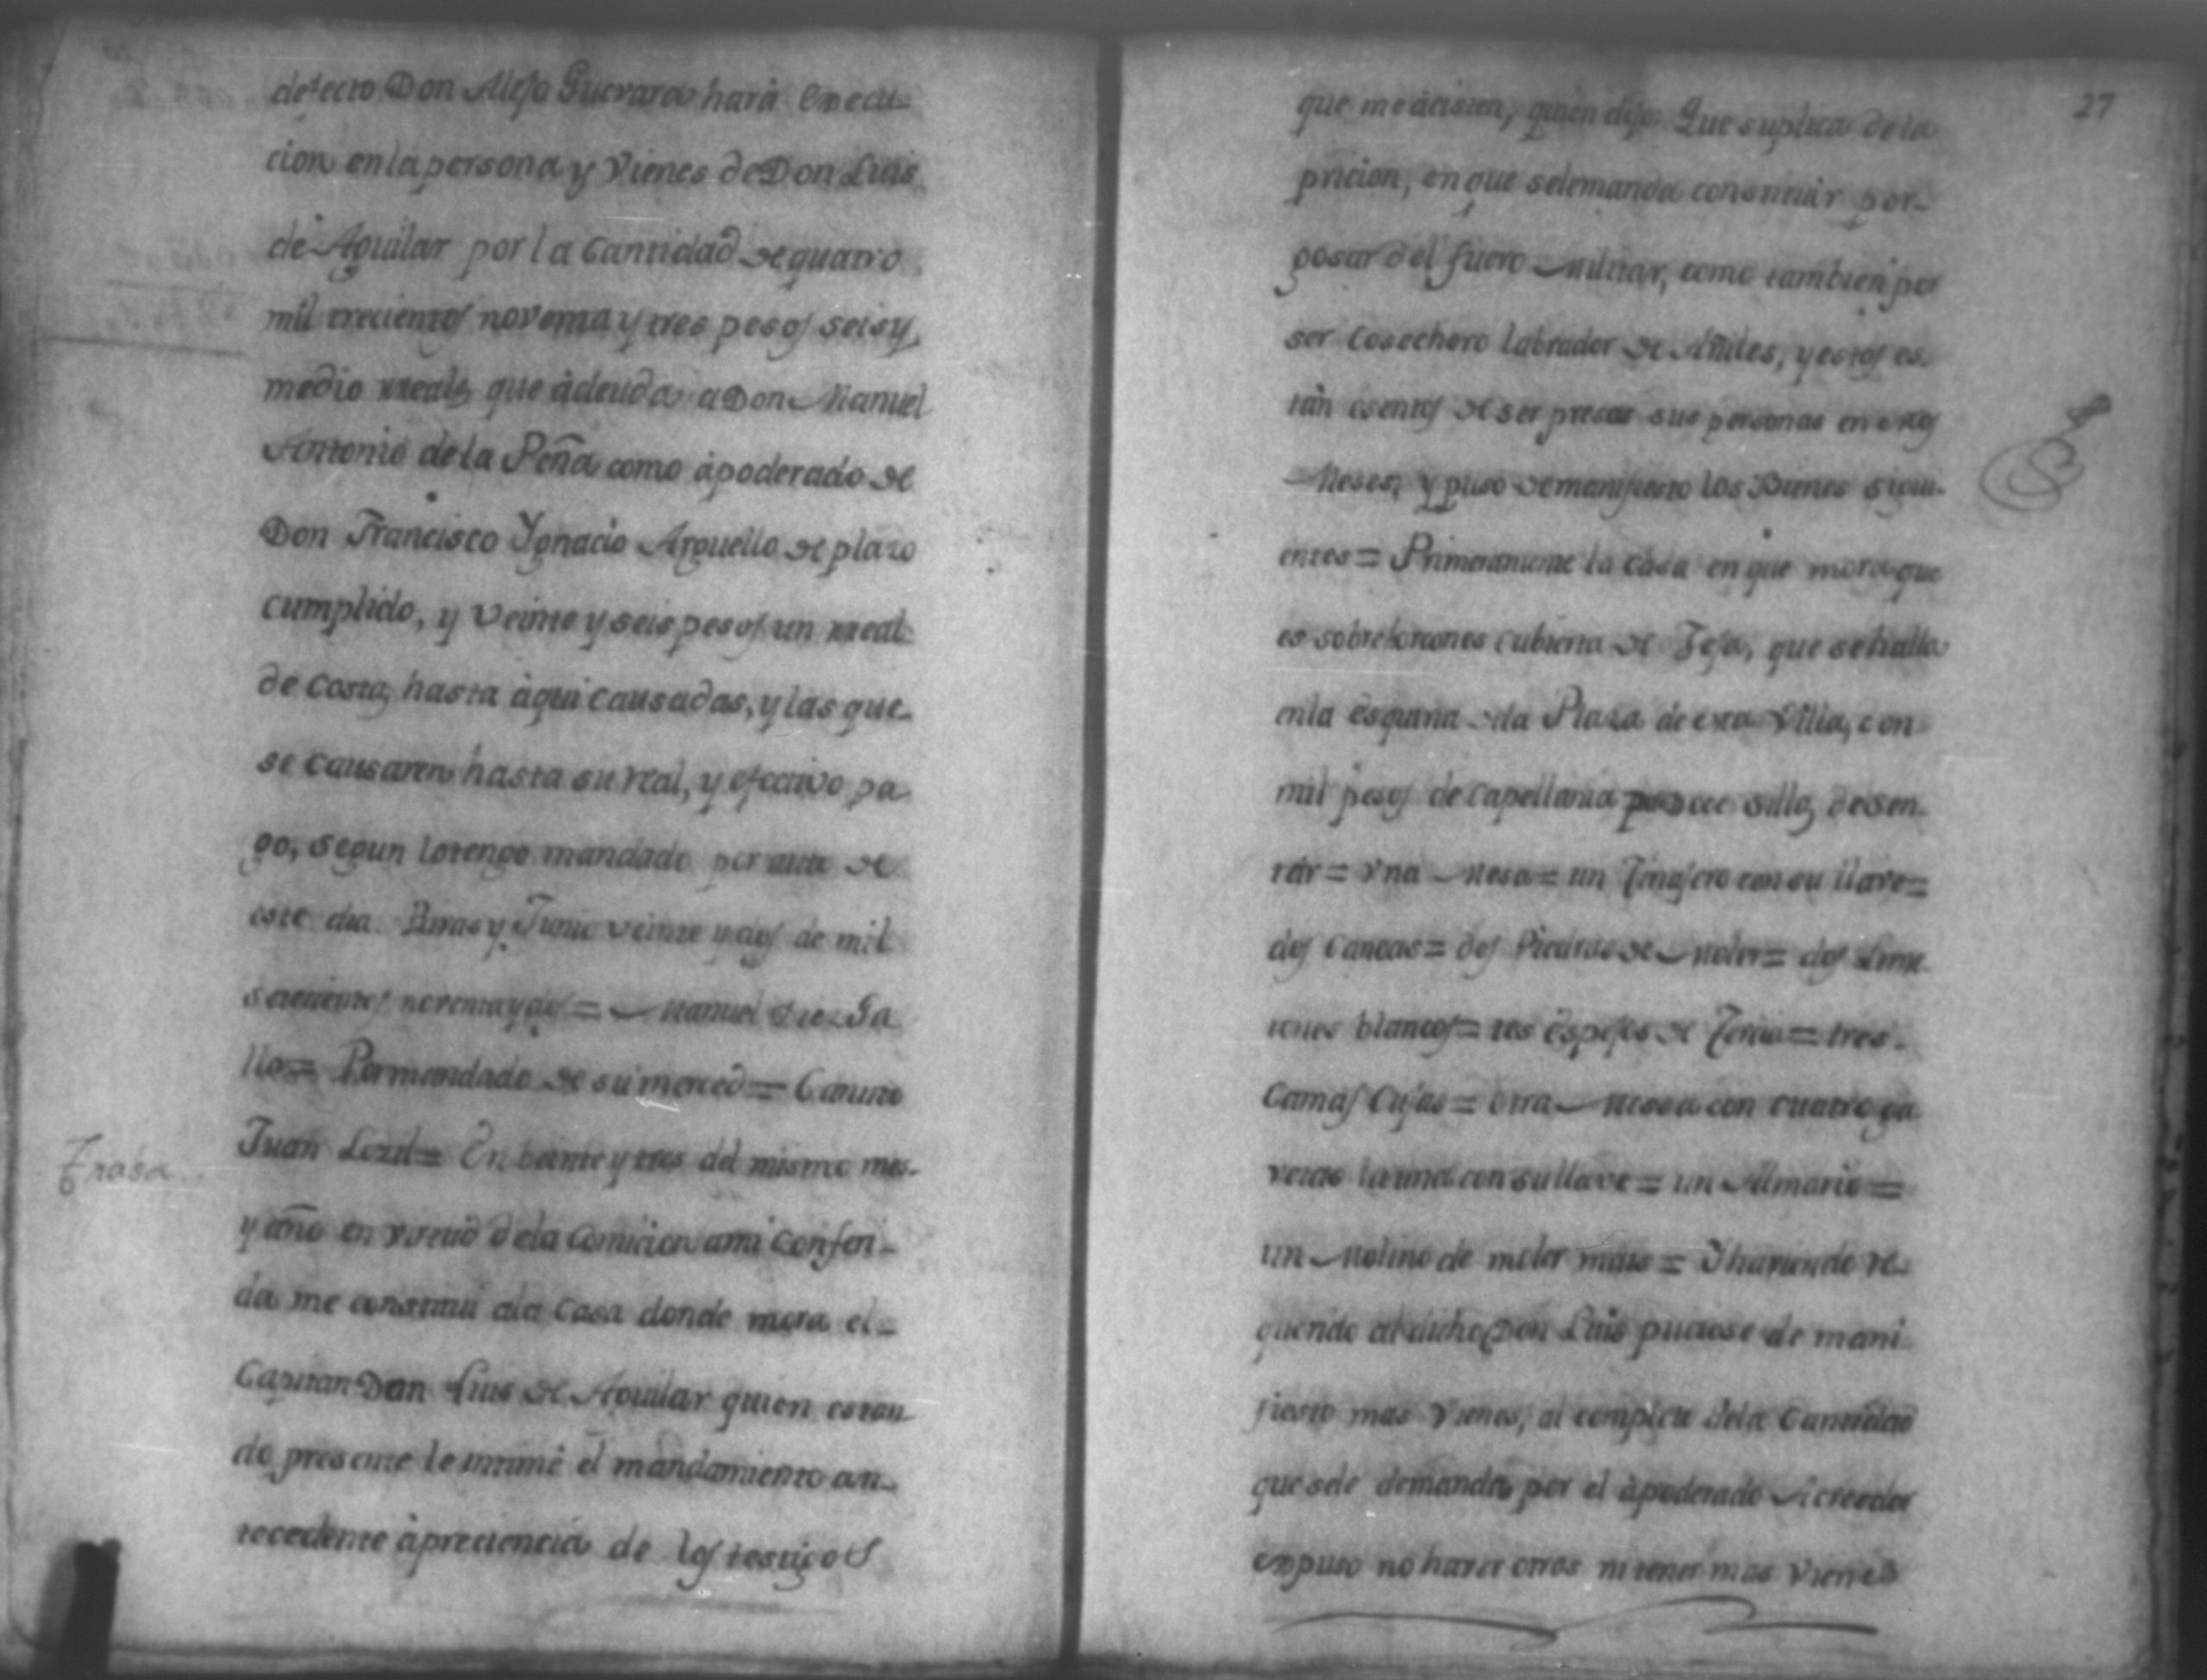 defecto Don Alejo Guevara hará Execu-
cion en la persona y Vienes de Don Luis
de Aguilar por la Cantidad de quatro
mil trecientos noventa y tres pesos seis y
medio rreales que àdeuda a Don Manuel
Antonio de la Peña como àpoderado de
Don Francisco Ygnacio Arguello de plazo
cumplido, y veinte y seis pesos un rreal
de costas hasta àqui causadas, y las que
se causaren hasta su real, y efectivo pa
go, segun lo tengo mandado por auto de
este dia. Rivas y Junio veinte y dos de mil
setecientos noventa y dos = Manuel Ga
llo = Por mandado de su merced = Camino
Juan = En beinte y tres del mismo mes
Traba
y año en virtud de la Comicion a mi Conferi-
da me constitui a la Casa donde mora el
Capitan Don Luis de Aguilar quien estan
do presente le intimé el mandamiento an-
tecedente à preciencia de los testigos
27
que me àcisten, quien dijo: Que suplica de la
pricion, en que se le manda constituir por
gosar del fuero Militar, como tambien por
ser Cosechero labrador de Añiles, y estos es-
tàn esentos de ser presas sus personas en estos
Meses, y puso de manifiesto los Bienes sigui-
entes = Primeramente la casa en que mora que
es sobre horcones cubierta de Teja, que se halla
en la esquina de la Plaza de esta Villa, con
mil pesos de Capellania sillas de sen-
tar = Una Mesa = un Tinajero con su llave =
dos Canoas = dos Piedras de Moler = dos
blancos = tres Espejos de Tercia = tres
Camas Cujas = otra Messa con cuatro ga
vetas la una con su llave = un Almario =
un Molino de moler mais = Y haviendo re-
querido al dicho Don Luis puciese de mani
fiesto mas Vienes, al completo de la Cantidad
que se le demanda por el àpoderado Acreedor
expuso no haver otros ni tener mas Vienes